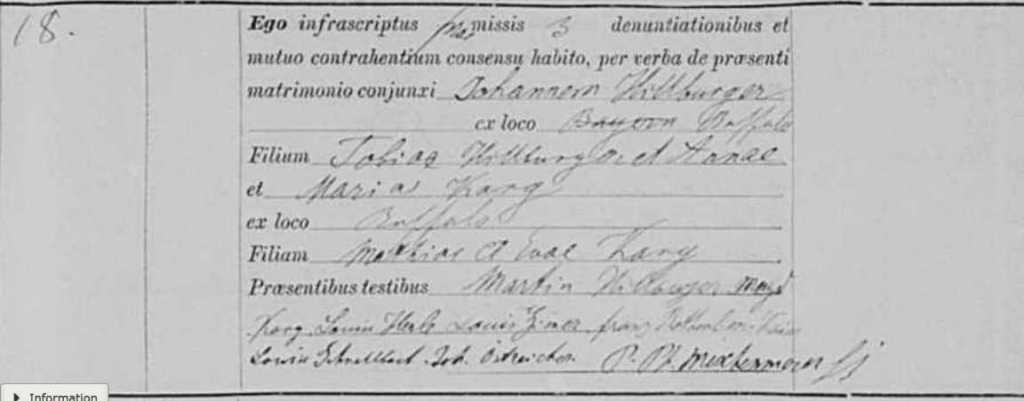 18.
Ego infrascriptus præmissis 3 denuntiationibus et
mutuo contrahentium consensu habito, per verba de præsenti
matrimonio conjunxi Johannem Hillburger
ex loco Bayern Buffalo
Filium Tobias Hillburger et Annae
et Maria Karg
ex loco Buffalo
Filiam Mathias & Evae Karg
Præsentibus testibus Martin Hillburger
Karg Louis Louis franz
Louis Joh.
Information